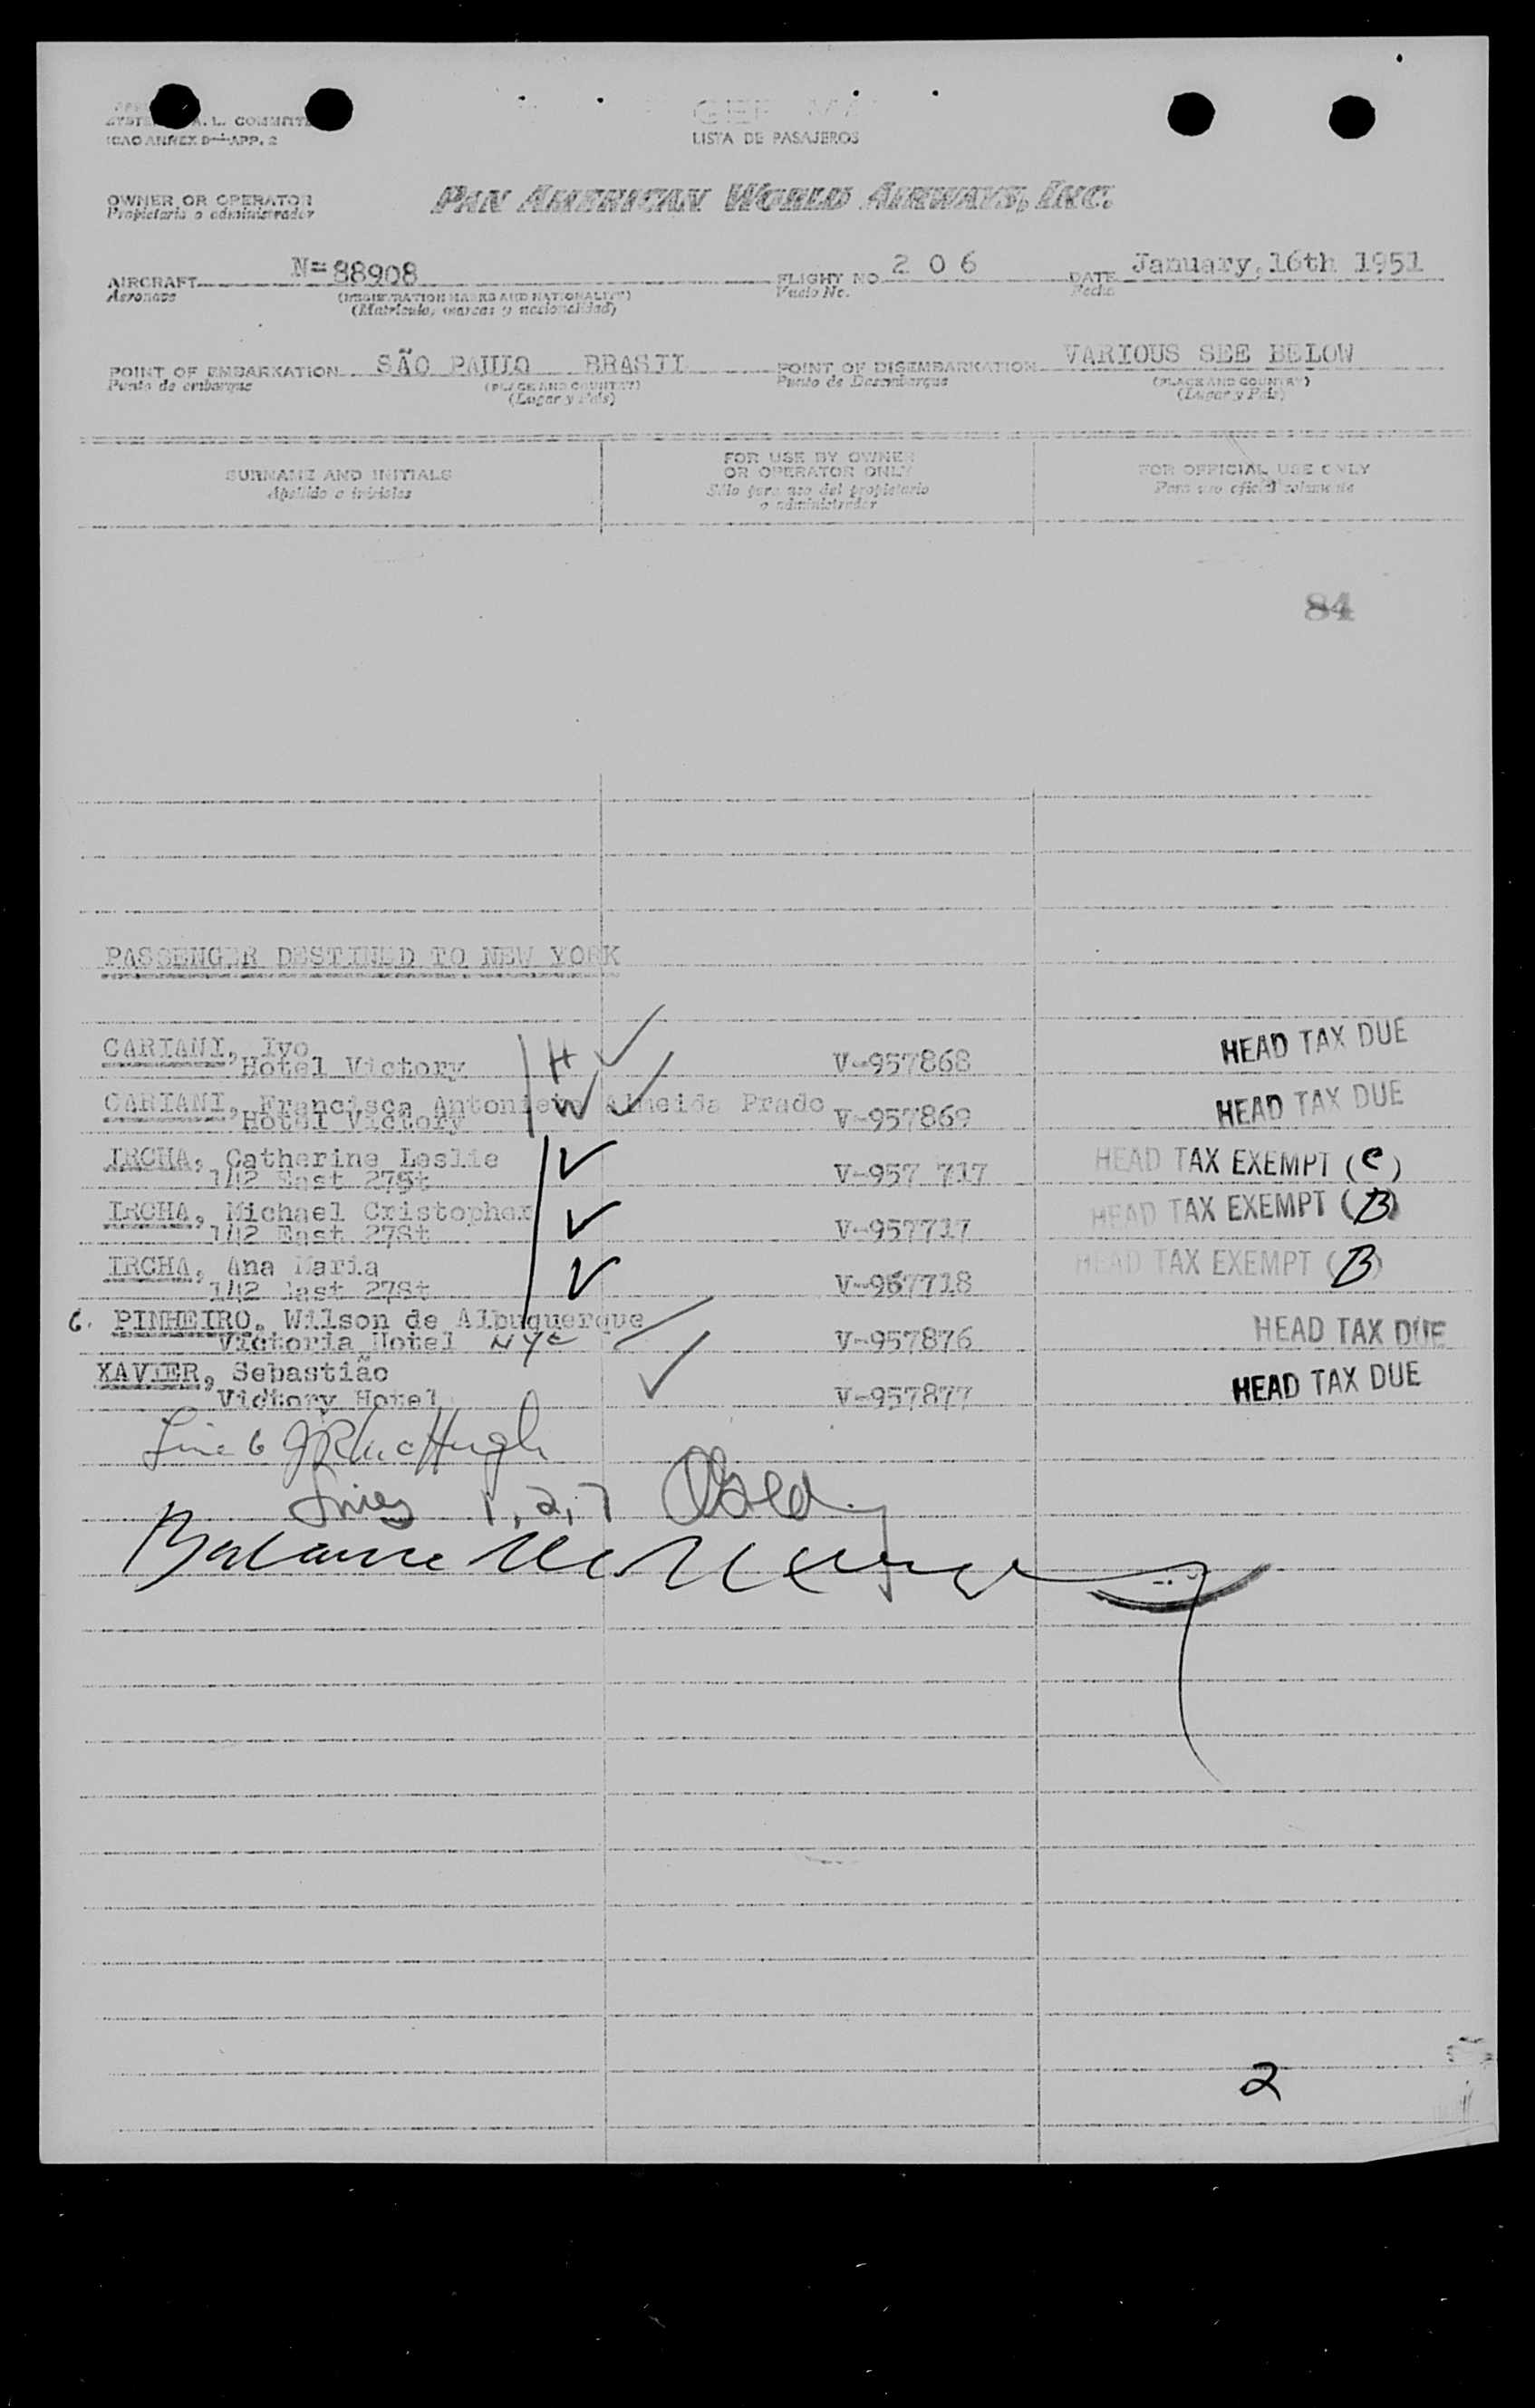 A. L. COMMITTE
ICAO ANNEX 9—APP. 2
LISTA DE PASAJEROS
OWNER OR OPERATOR
Propietario o administrador
PAN AMERICAN WORLD AIRWAYS, INC.
AIRCRAFT N=88908 FLIGHT NO. 2 0 6 DATE January, 16th 1951
Aeronave (REGISTRATION MARKS AND NATIONALITY) Vuelo No. Fecha
(Matrícula, marcas y nacionalidad)
POINT OF EMBARKATION SÃO PAULO BRASIL POINT OF DISEMBARKATION VARIOUS SEE BELOW
Punto de embarque (PLACE AND COUNTRY) Punto de Desembarque (PLACE AND COUNTRY)
(Lugar y País) (Lugar y País)
SURNAME AND INITIALS FOR USE BY OWNER OR OPERATOR ONLY FOR OFFICIAL USE ONLY
Apellido e iniciales Sólo para uso del propietario o administrador Para uso oficial solamente
84
PASSENGER DESTINED TO NEW YORK
CARIANI, Ivo H V-957868 HEAD TAX DUE
Hotel Victory
CARIANI, Francisca Antonieta Almeida Prado W V-957869 HEAD TAX DUE
Hotel Victory
IRCHA, Catherine Leslie V-957 717 HEAD TAX EXEMPT (C)
142 East 27St
IRCHA, Michael Cristopher V-957717 HEAD TAX EXEMPT (B)
142 East 27St
IRCHA, Ana Maria V-957718 HEAD TAX EXEMPT (B)
142 East 27St
6. PINHEIRO, Wilson de Albuquerque V-957876 HEAD TAX DUE
Victoria Hotel NYC
XAVIER, Sebastião V-957877 HEAD TAX DUE
Victory Hotel
Line 6
Lines 1, 2, 7
Balance
2